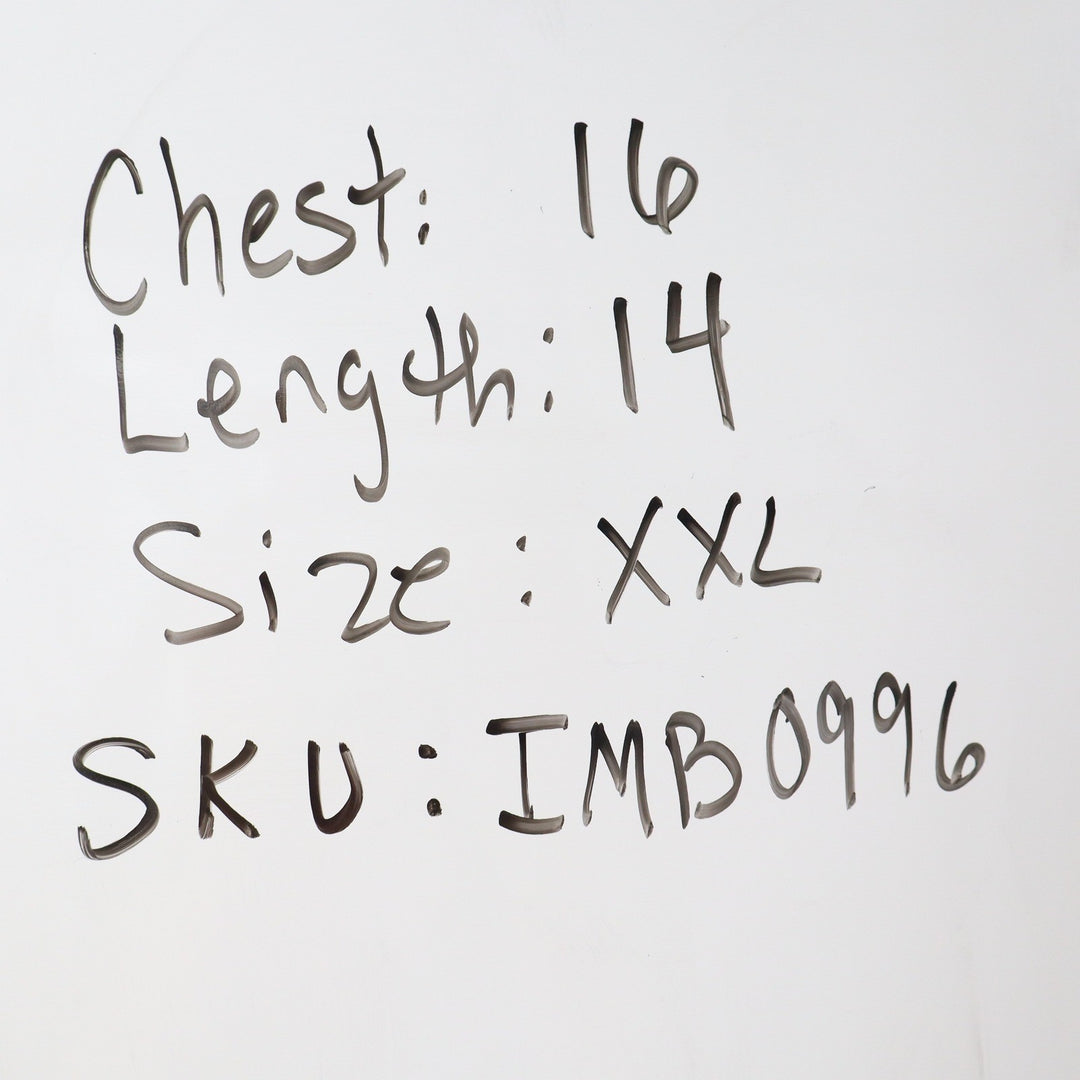 Chest: 16
Length: 14
Size: XXL
SKU: IMB0996